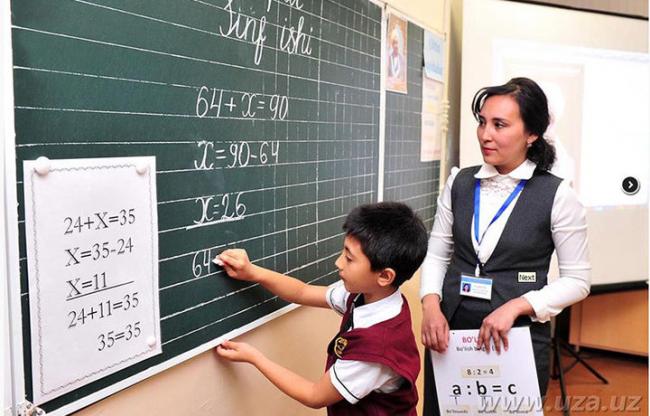 Sinf ishi
64+x=90
x=90-64
x=26
64
24+X=35
X=35-24
X=11
24+11=35
35=35
Next
BO'LISH
Bo'lish
8:2=4
a:b=c
www.uza.uz